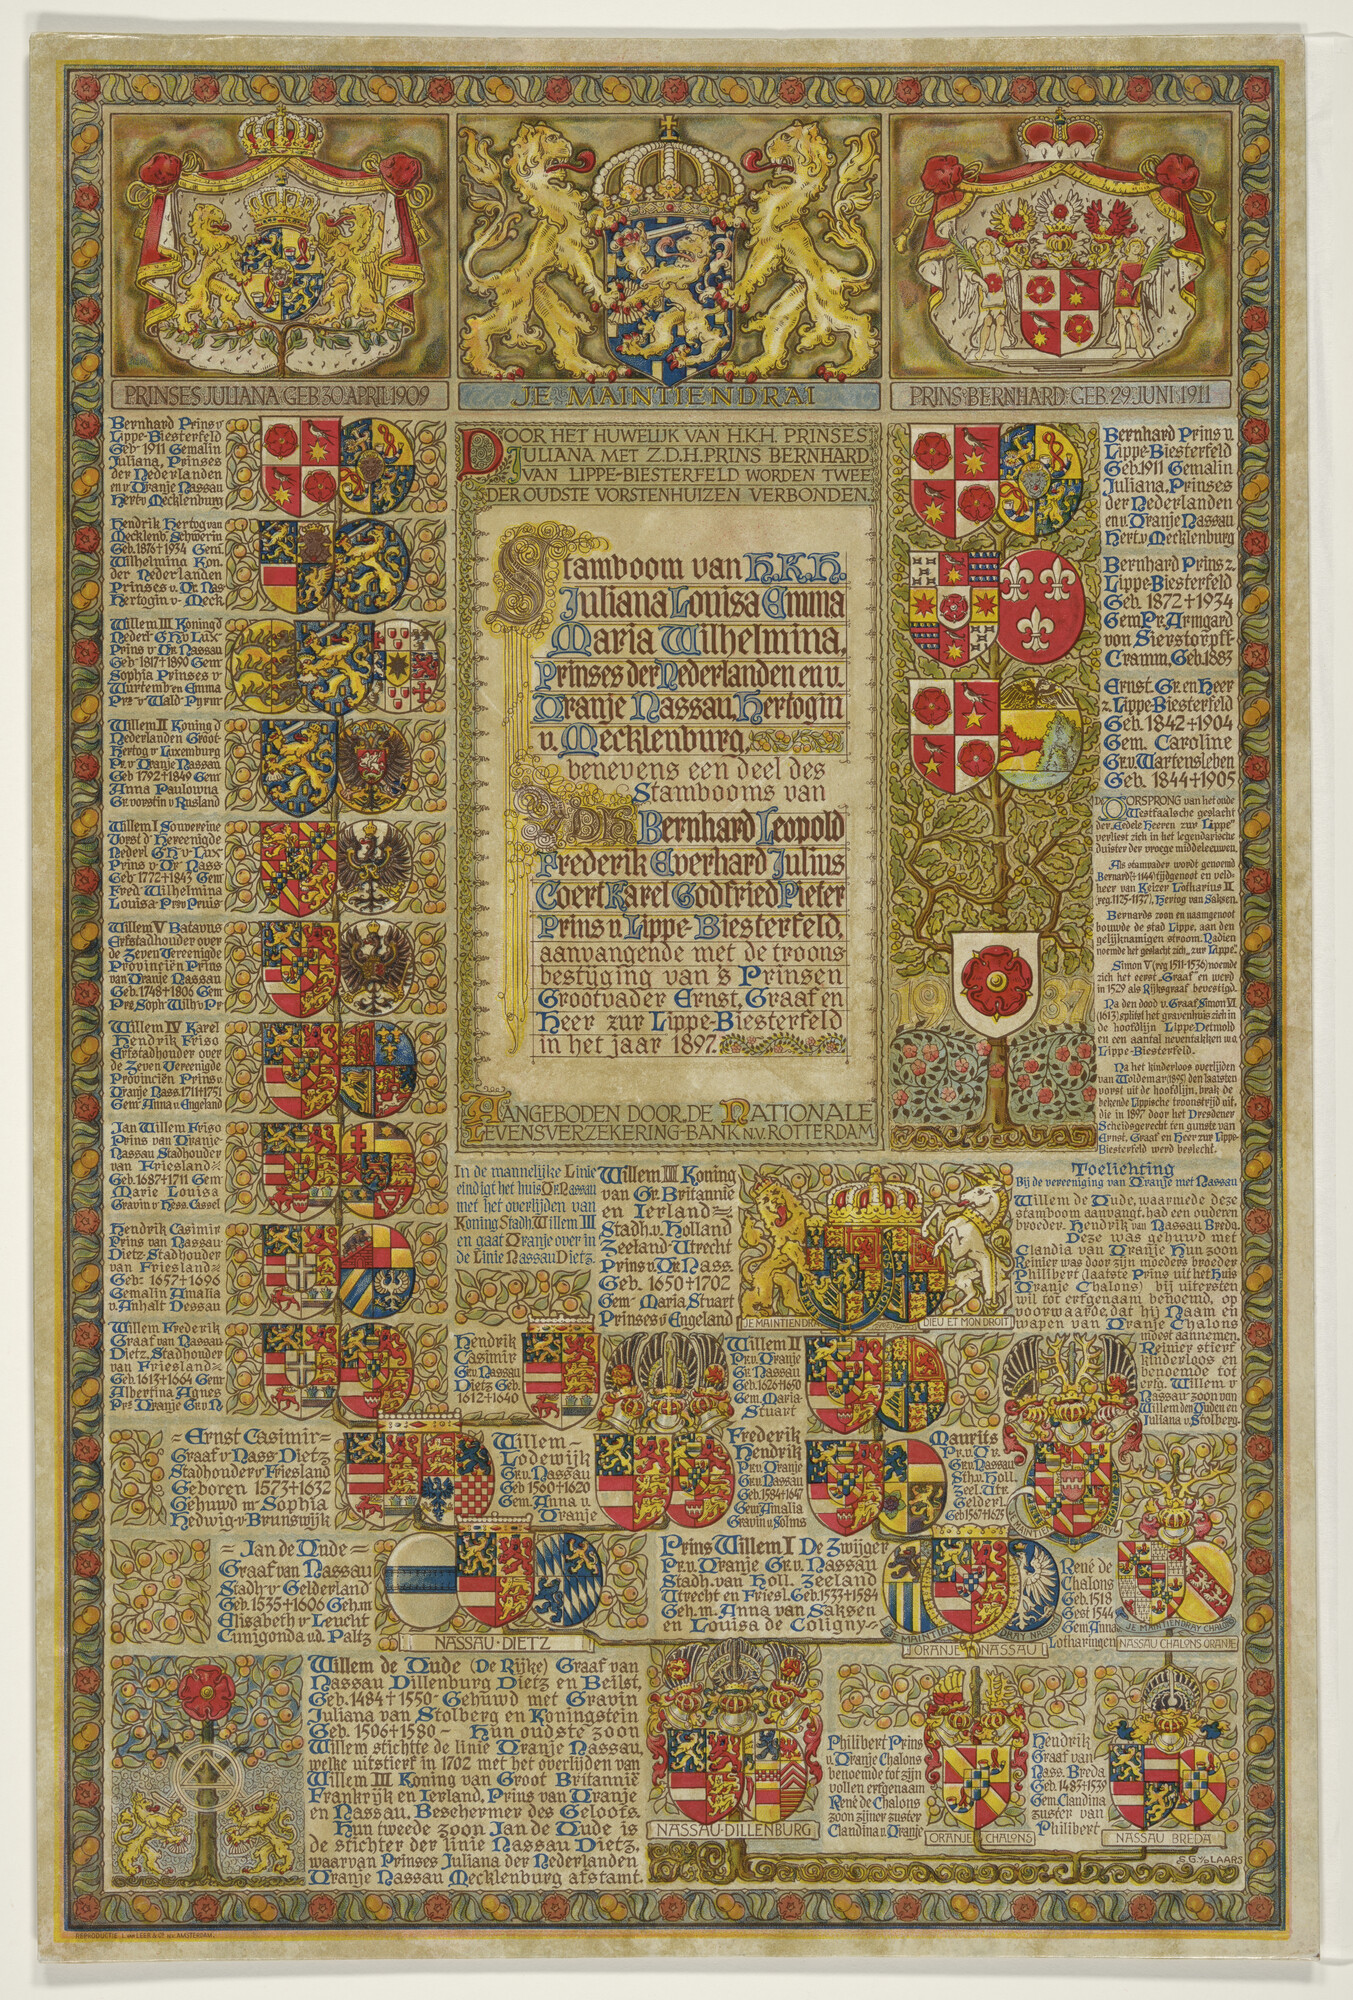 PRINSES JULIANA GEB 30 APRIL 1909
JE MAINTIENDRAI
PRINS BERNHARD GEB 29 JUNI 1911
Bernhard Prins v
Lippe-Biesterfeld
Geb 1911 Gemalin
Juliana, Prinses
der Nederlanden
en v Oranje Nassau
Hert v Mecklenburg
Hendrik Hertog van
Mecklenb. Schwerin
Geb. 1876 † 1934 Gem.
Wilhelmina Kon.
der Nederlanden
Prinses v. Or. Nas
Hertogin v. Meck
Willem III Koning d
Nederl GH v Lux
Prins v Or. Nassau
Geb 1817 † 1890 Gem
Sophia Prinses v
Wurtemb en Emma
Prs v Wald Pyrm
Willem II Koning d
Nederlanden Groot
Hertog v Luxemburg
Pr. v Oranje Nassau
Geb 1792 † 1849 Gem
Anna Paulowna
Gr. vorstin v Rusland
Willem I Souvereine
Vorst d' Vereenigde
Nederl GH v Lux
Prins v Or Nass
Geb 1772 † 1843 Gem
Fred Wilhelmina
Louisa Prs v Pruis
Willem V Batavus
Erfstadhouder over
de Zeven Vereenigde
Provinciën Prins
van Oranje Nassau
Geb. 1748 † 1806 Gem
Prs Soph Wilh v Pr
Willem IV Karel
Hendrik Friso
Erfstadhouder over
de Zeven Vereenigde
Provinciën Prins v.
Oranje Nass. 1711 † 1751
Gem Anna v. Engeland
Jan Willem Friso
Prins van Oranje-
Nassau Stadhouder
van Friesland
Geb. 1687 † 1711 Gem
Marie Louisa
Gravin v Hess. Cassel
Hendrik Casimir
Prins van Nassau
Dietz Stadhouder
van Friesland
Geb: 1657 † 1696
Gemalin Amalia
v. Anhalt Dessau
Willem Frederik
Graaf van Nassau
Dietz, Stadhouder
van Friesland
Geb. 1613 † 1664 Gem
Albertina Agnes
Prs Oranje Gr. v N
DOOR HET HUWELIJK VAN H.K.H. PRINSES
JULIANA MET Z.D.H. PRINS BERNHARD
VAN LIPPE-BIESTERFELD WORDEN TWEE
DER OUDSTE VORSTENHUIZEN VERBONDEN.
Stamboom van H.K.H.
Juliana Louisa Emma
Maria Wilhelmina,
Prinses der Nederlanden en v.
Oranje Nassau, Hertogin
v. Mecklenburg,
benevens een deel des
Stambooms van
ZDH Bernhard Leopold
Frederik Everhard Julius
Coert Karel Godfried Pieter
Prins v Lippe-Biesterfeld,
aanvangende met de troons
bestijging van 's Prinsen
Grootvader Ernst, Graaf en
Heer zur Lippe-Biesterfeld
in het jaar 1897.
AANGEBODEN DOOR DE NATIONALE
LEVENSVERZEKERING-BANK N.V. ROTTERDAM
Bernhard Prins v
Lippe-Biesterfeld
Geb. 1911 Gemalin
Juliana, Prinses
der Nederlanden
en v Oranje Nassau
Hert. v Mecklenburg
Bernhard Prins z.
Lippe-Biesterfeld
Geb. 1872 † 1934
Gem Pr. Armgard
von Sierstorpff-
Cramm, Geb. 1883
Ernst, Gr. en Heer
z. Lippe-Biesterfeld
Geb. 1842 † 1904
Gem. Caroline
Gr. v Wartensleben
Geb. 1844 † 1905
DE OORSPRONG van het oude
Westfaalsche geslacht
der „Eedele Heeren zur Lippe"
verliest zich in het legendarische
duister der vroege middeleeuwen.
Als stamvader wordt genoemd
Bernard (†1144) tijdgenoot en veld-
heer van Keizer Lotharius II
(reg. 1125-1137), Hertog van Saksen.
Bernards zoon en naamgenoot
bouwde de stad Lippe, aan den
gelijknamigen stroom. Nadien
noemde het geslacht zich „zur Lippe".
Simon V (reg 1511-1536) noemde
zich het eerst „Graaf" en werd
in 1529 als Rijksgraaf bevestigd.
Na den dood v. Graaf Simon VI
(1613) splitst het gravenhuis zich in
de hoofdlijn Lippe-Detmold
en een aantal neventakken w.o.
Lippe-Biesterfeld.
Na het kinderloos overlijden
van Woldemar (1895) den laatsten
vorst uit de hoofdlijn, brak de
bekende Lippische troonstrijd uit,
die in 1897 door het Dresdener
Scheidsgerecht ten gunste van
Ernst, Graaf en Heer zur Lippe-
Biesterfeld werd beslecht.
1937
In de mannelijke Linie
eindigt het huis Or. Nassau
met het overlijden van
Koning Stadh. Willem III
en gaat Oranje over in
de Linie Nassau Dietz.
Willem III Koning
van Gr. Britannië
en Ierland
Stadh. v. Holland
Zeeland Utrecht
Prins v Or. Nass.
Geb. 1650 † 1702
Gem Maria Stuart
Prinses v Engeland
JE MAINTIENDRAI
DIEU ET MON DROIT
Toelichting
Bij de vereeniging van Oranje met Nassau
Willem de Oude, waarmede deze
stamboom aanvangt, had een ouderen
broeder. Hendrik van Nassau Breda.
Deze was gehuwd met
Claudia van Oranje Hun zoon
Reinier was door zijn moeders broeder
Philibert (laatste Prins uit het Huis
Oranje Chalons) bij uitersten
wil tot erfgenaam benoemd, op
voorwaarde, dat hij Naam en
wapen van Oranje Chalons
moest aannemen.
Reinier stierf
kinderloos en
benoemde tot
erfg. Willem v
Nassau zoon van
Willem den Ouden en
Juliana v. Stolberg.
Hendrik
Casimir
Gr. v. Nassau
Dietz Geb.
1612 † 1640
Willem II
Pr. v. Oranje
Gr. Nassau
Geb. 1626 † 1650
Gem. Maria
Stuart
Ernst Casimir
Graaf v Nass Dietz
Stadhouder v Friesland
Geboren 1573 † 1632
Gehuwd m Sophia
Hedwig v Brunswijk
Willem
Lodewijk
Gr. v. Nassau
Geb 1560 † 1620
Gem. Anna v.
Oranje
Frederik
Hendrik
Pr. v. Oranje
Gr. v Nassau
Geb. 1584 † 1647
Gem Amalia
Gravin v Solms
Maurits
Pr. v. Or.
Gr. v Nassau
Sth. v. Holl.
Zeel. Utr.
Gelderl.
Geb 1567 † 1625
Jan de Oude
Graaf van Nassau
Stadh v Gelderland
Geb. 1535 † 1606 Geh. m
Elisabeth v Leucht
Cunigonda v.d. Paltz
NASSAU-DIETZ
Prins Willem I De Zwijger
Pr. v. Oranje Gr. v. Nassau
Stadh. van Holl. Zeeland
Utrecht en Friesl. Geb. 1533 † 1584
Geh. m. Anna van Saksen
en Louisa de Coligny
ORANJE NASSAU
René de
Chalons
Geb. 1518
Gest 1544
Gem Anna
Lotharingen
JE MAINTIENDRAY CHALONS
NASSAU CHALONS ORANJE
Willem de Oude (De Rijke) Graaf van
Nassau Dillenburg Dietz en Beilst.
Geb. 1484 † 1550 - Gehuwd met Gravin
Juliana van Stolberg en Koningstein
Geb. 1506 † 1580 - Hun oudste zoon
Willem stichtte de linie Oranje Nassau,
welke uitstierf in 1702 met het overlijden van
Willem III Koning van Groot Britannië
Frankrijk en Ierland, Prins van Oranje
en Nassau, Beschermer des Geloofs.
Hun tweede zoon Jan de Oude is
de stichter der linie Nassau Dietz,
waarvan Prinses Juliana der Nederlanden
Oranje Nassau Mecklenburg afstamt.
NASSAU-DILLENBURG
Philibert Prins
v. Oranje Chalons
benoemde tot zijn
vollen erfgenaam
René de Chalons
zoon zijner zuster
Claudina v. Oranje
ORANJE CHALONS
Hendrik
Graaf van
Nass. Breda
Geb. 1483 † 1539
Gem. Claudina
zuster van
Philibert
NASSAU BREDA
S.G. v/d LAARS
REPRODUCTIE L. VAN LEER & Co. N.V. AMSTERDAM.